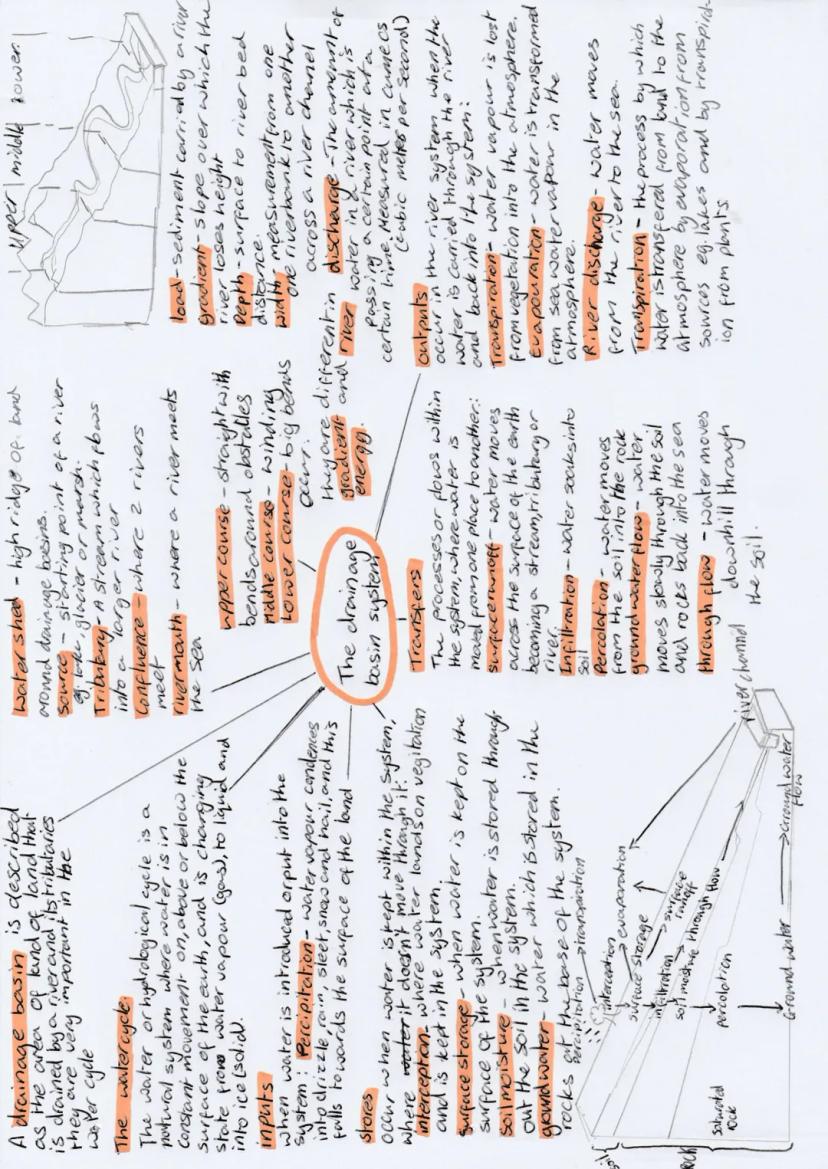 A drainage basin is described
as the area of land of land that
is drained by a river and its tributaries
they are very important in the
water cycle
The water cycle.
The water or hydrological cycle is a
natural system where water is in
constant movement on, above or below the
surface of the earth, and is changing
state from water vapour (gas), to liquid and
into ice (solid).
inputs
when water is introduced or put into the
system: Percipitation - water vapour condences
into drizzle, rain, sleet, snow and hail, and this
falls towards the surface of the land
stores
occur when water is kept within the system,
where water it doesn't move through it:
interception - where water lands on vegitation
and is kept in the system.
surface storage - when water is kept on the
surface of the system.
soil moisture - when water is stored through-
out the soil in the system.
ground water - water which is stored in the
rocks at the base of the system.
percipitation
transpiration
interception
evaporation
surface storage
surface runoff
infiltration
soil moisture
through flow
percolation
Ground water
Ground water flow
river channel
saturated rock
soil
rock
water shed - high ridge of land
around drainage basins
source - starting point of a river
eg. lake, glacier or marsh.
Tributary - A stream which flows
into a larger river
Confluence - where 2 rivers
meet
river mouth - where a river meets
the sea
upper course - straight with
bends around obstacles
middle course - winding
Lower course - big bends
occur.
they are different in
gradient and river
energy.
The drainage
basin system
Transfers
The processes or flows within
the system, where water is
moved from one place to another:
surface runoff - water moves
across the surface of the earth
becoming a stream, tributary or
river.
Infiltration - water soaks into
soil
Percolation - water moves
from the soil into the rock
ground water flow - water
moves slowly through the soil
and rocks back into the sea
through flow - water moves
downhill through
the soil.
Upper | middle | lower
load - sediment carried by a river
gradient - slope over which the
river loses height
Depth - surface to river bed
distance.
width - measurement from one
one riverbank to another
across a river channel
discharge - The amount of
water in a river which is
passing a certain point at a
certain time. Measured in cumecs
(cubic metres per second)
Outputs
occur in the river system when the
water is carried through the river
and back into the system:
Transpiration - water vapour is lost
from vegetation into the atmosphere.
Evapouration - water is transformed
from sea water vapour in the
atmosphere.
River discharge - water moves
from the river to the sea.
Transpiration - the process by which
water is transfered from land to the
atmosphere by evaporation from
sources eg. lakes and by transpirat-
ion from plants